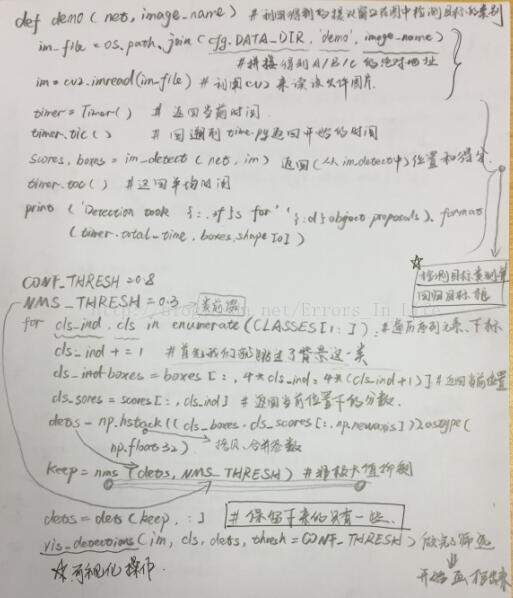 def demo (net, image_name) #利用得到的候选窗口在图中检测目标的类别
im_file = os.path.join (cfg.DATA_DIR, 'demo', image_name)
#拼接得到A/B/C的绝对地址
im = cv2.imread(im_file) #利用cv2来读该文件图片
timer = Timer() # 返回当前时间
timer.tic() # 回溯到time.py返回开始的时间
scores, boxes = im_detect (net, im) 返回(从im.detect中)位置和得分.
timer.toc() #返回平均时间
print ('Detection took {:.3f}s for' '{:d} object proposals'). format
(timer.total_time, boxes.shape[0])
☆ 检测目标类别并
回归目标框
CONF_THRESH = 0.8
NMS_THRESH = 0.3
http:// .net/Errors_In_Life
for cls_ind, cls in enumerate (CLASSES[1:]): #遍历序列元素、下标
cls_ind += 1 #首先我们 跳过了背景这一类
cls_ind boxes = boxes [:, 4*cls_ind: 4*(cls_ind+1)] #返回当前位置
cls_sores = scores[:, cls_ind] # 返回当前位置下的分数.
dets = np.hstack ((cls_boxes, cls_scores[:, np.newaxis])).astype(
np.float32) 拷贝、合并参数
keep = nms (dets, NMS_THRESH) #非极大值抑制
dets = dets (keep, :] # 保留下来的只有一些.
vis_detections (im, cls, dets, thresh = CONF_THRESH) 做完筛选
☆可视化操作. 开始画出来